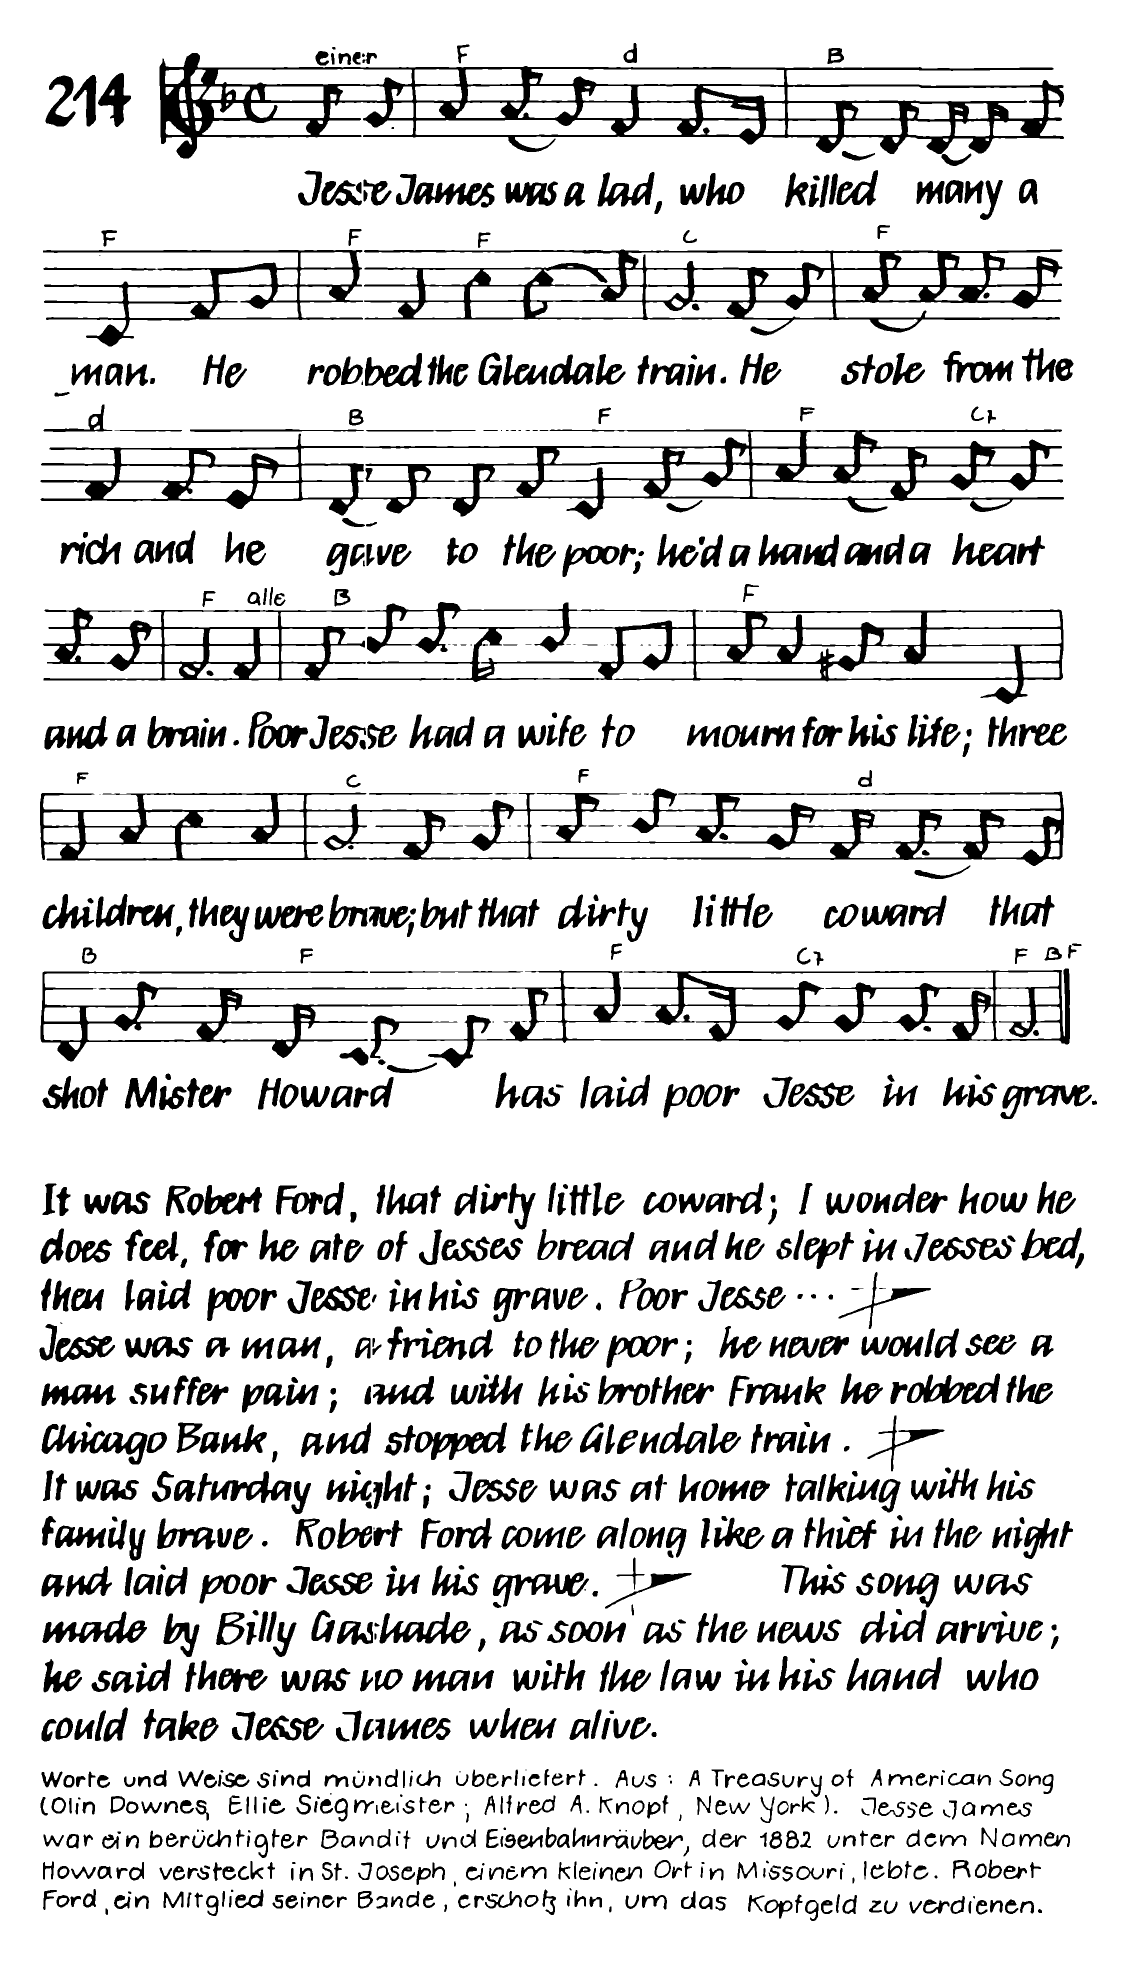 214
einer F d B
Jesse James was a lad, who killed many a
F F F C F
man. He robbed the Glendale train. He stole from the
d B F F C7
rich and he gave to the poor; he'd a hand and a heart
F alle B F
and a brain. Poor Jesse had a wife to mourn for his life; three
F C F d
children, they were brave; but that dirty little coward that
B F F C7 F B F
shot Mister Howard has laid poor Jesse in his grave.
It was Robert Ford, that dirty little coward; I wonder how he
does feel, for he ate of Jesses bread and he slept in Jesses bed,
then laid poor Jesse in his grave. Poor Jesse ...
Jesse was a man, a friend to the poor; he never would see a
man suffer pain; and with his brother Frank he robbed the
Chicago Bank, and stopped the Glendale train.
It was Saturday night; Jesse was at home talking with his
family brave. Robert Ford come along like a thief in the night
and laid poor Jesse in his grave. This song was
made by Billy Gashade, as soon as the news did arrive;
he said there was no man with the law in his hand who
could take Jesse James when alive.
Worte und Weise sind mündlich überliefert. Aus: A Treasury of American Song
(Olin Downes, Ellie Siegmeister; Alfred A. Knopf, New York). Jesse James
war ein berüchtigter Bandit und Eisenbahnräuber, der 1882 unter dem Namen
Howard versteckt in St. Joseph, einem kleinen Ort in Missouri, lebte. Robert
Ford, ein Mitglied seiner Bande, erschoß ihn, um das Kopfgeld zu verdienen.